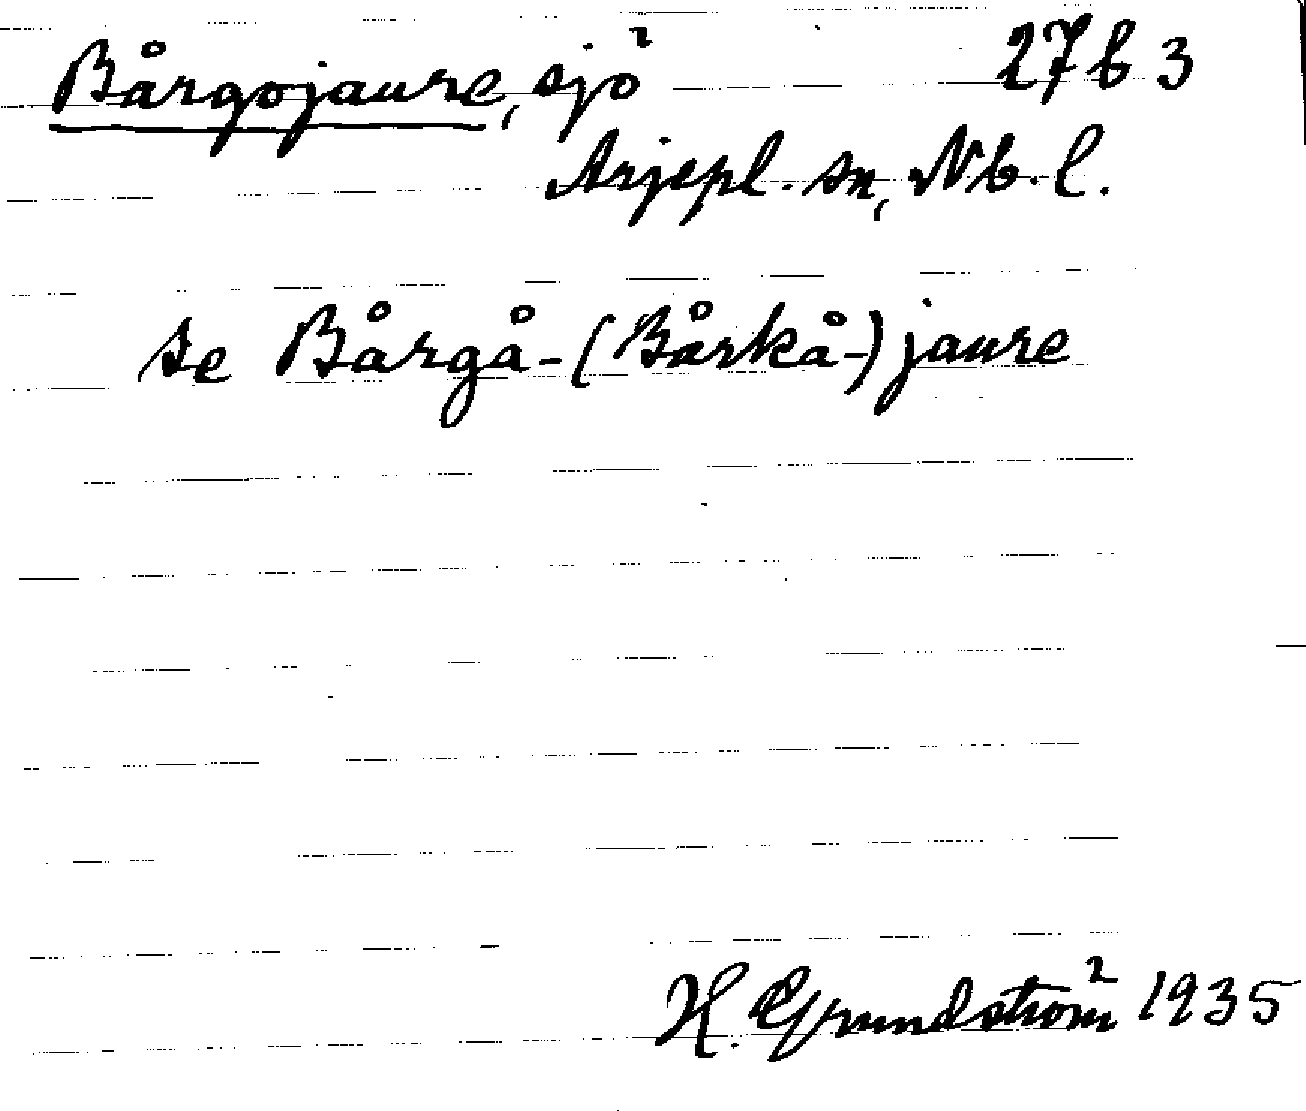 Bårgojaure, sjö 27 b 3
Arjepl. sn, Nb. l.
se Bårgå- (Bårkå-) jaure
H. Grundström 1935